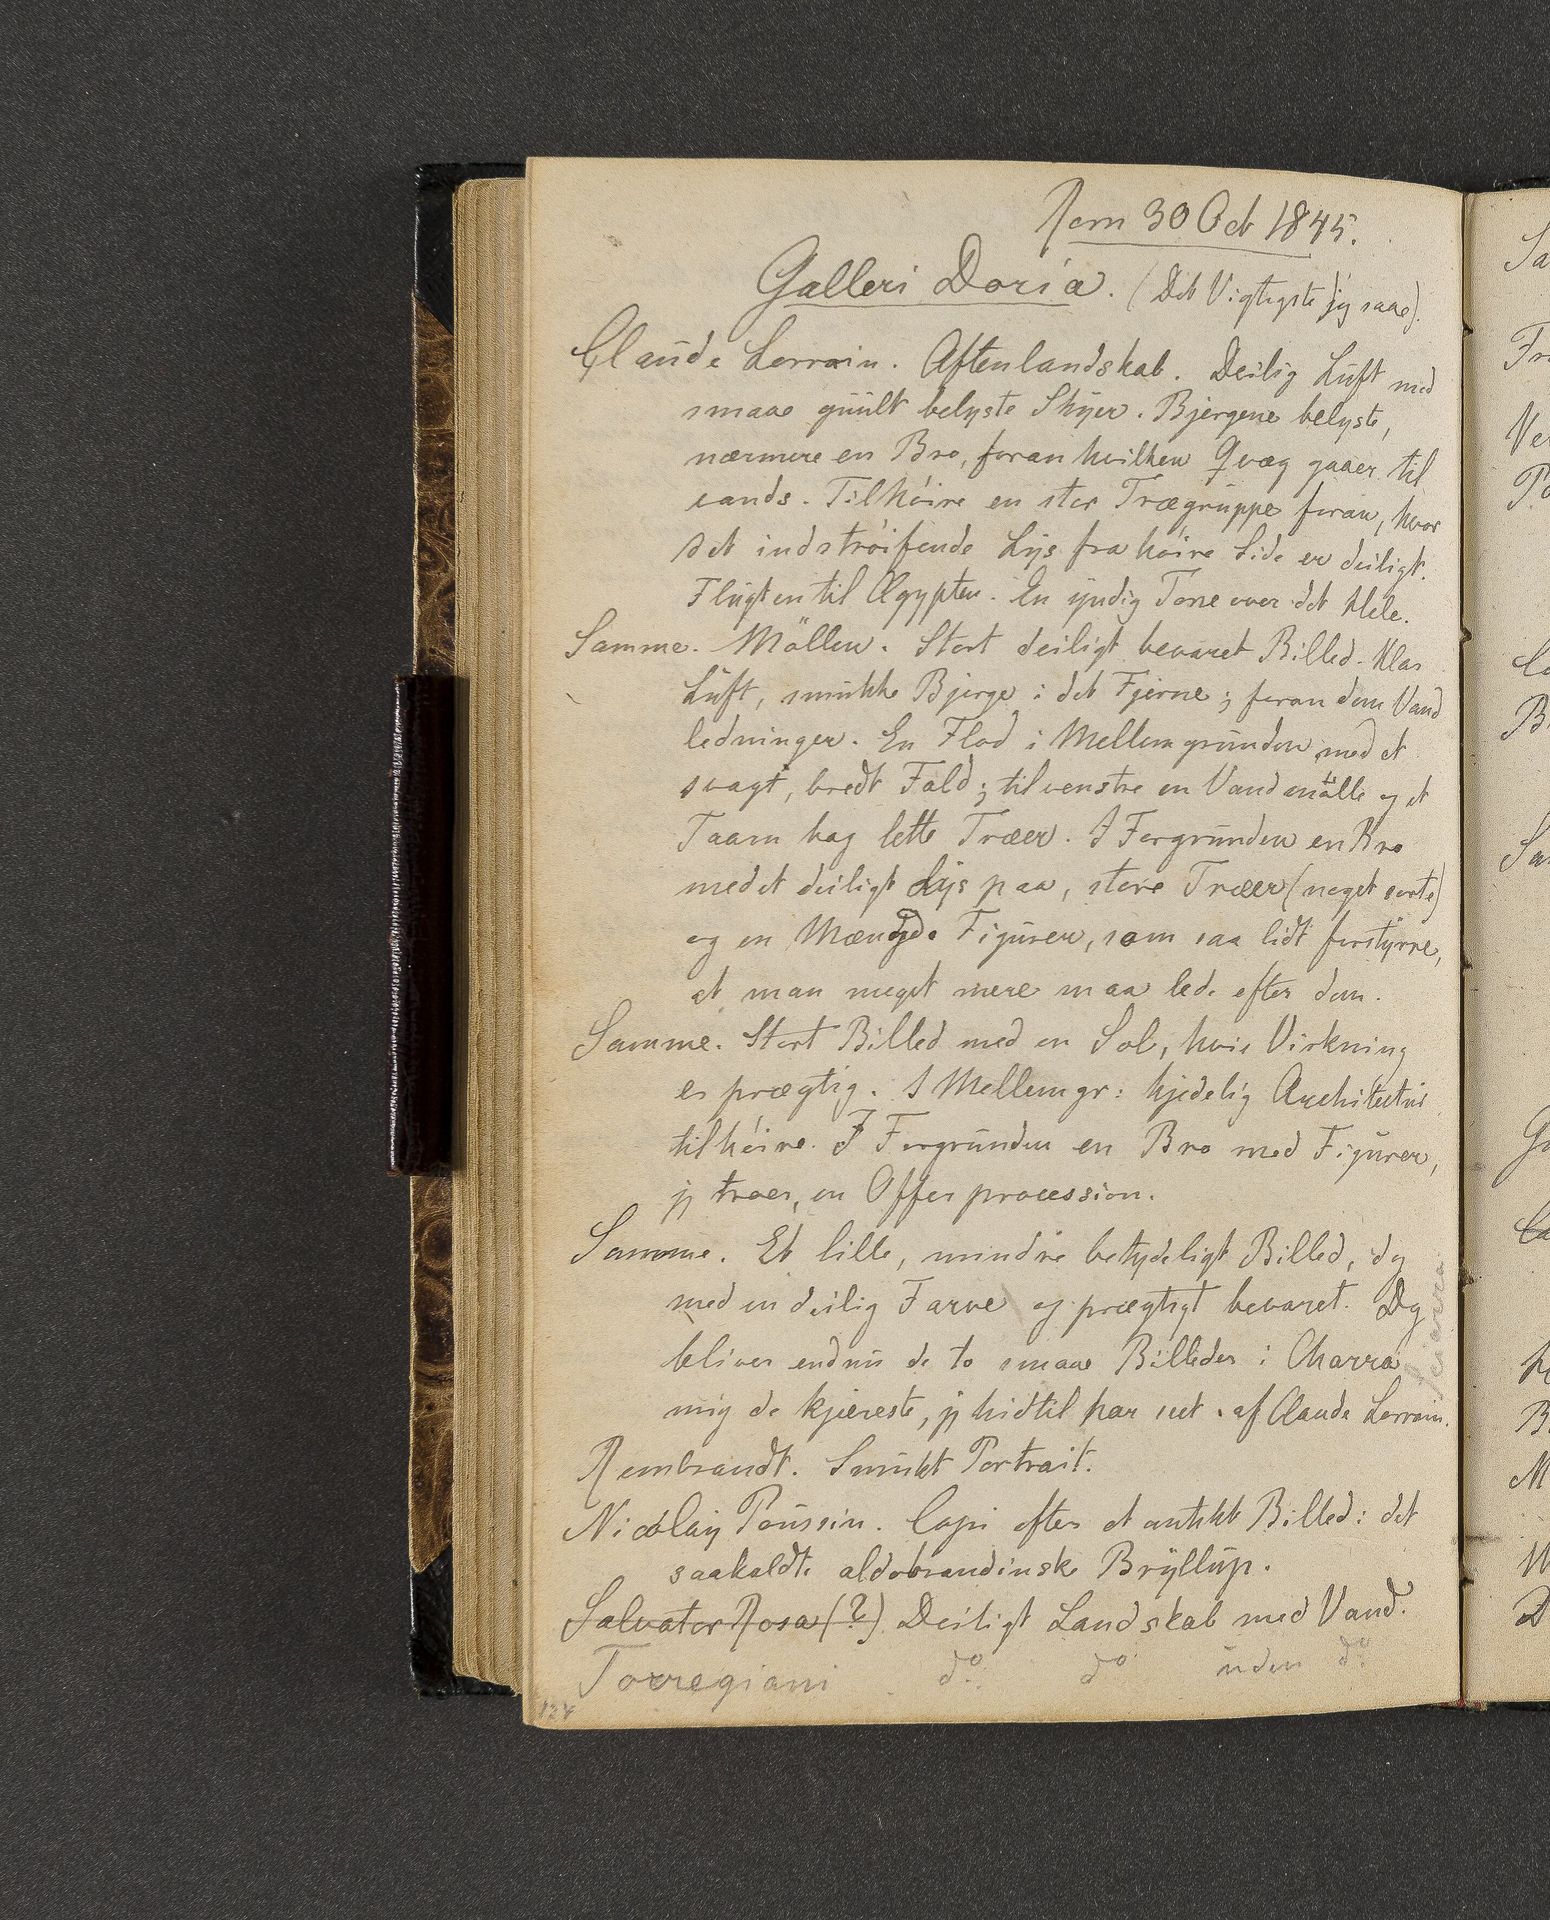 Rom 30 Oct 1845.
Galleri Doria. (Det Vigtigste jeg saae).
Claude Lorrain. Aftenlandskab. Deilig Luft med
smaae guult belyste Skyer. Bjergene belyste,
nærmere en Bro, foran hvilken Qvæg gaaer til
vands. Tilhöire en stor Trægruppe foran, hvor
det indströifende Lys fra höire Side er deiligt.
Flugten til Ægypten. En yndig Tone over det Hele.
Samme. Möllen. Stort deiligt bevaret Billed. Klar
Luft, smukke Bjerge i det Fjerne; foran dem Vand
ledninger. En Flod i Mellemgrunden med et
svagt, bredt Fald; tilvenstre en Vandmölle og et
Taarn bag lette Træer. I Forgrunden en Bro
med et deiligt Lys paa, store Træer (noget sorte)
og en Mængde Figurer, som saa lidt forstyrre,
at man meget mere maa lede efter dem.
Samme. Stort Billed med en Sol, hvis Virkning
er prægtig. I Mellemgr: kjedelig Architectur
tilhöire. I Forgrunden en Bro med Figurer,
jeg troer, en Offerprocession.
Samme. Et lille, mindre betydeligt Billed, dog
med en deilig Farve og prægtigt bevaret. Dog
bliver endnu de to smaae Billeder i
mig de kjæreste, jeg hidtil har seet af Claude Lorrain.
Rembrandt. Smukt Portrait.
Nicolay Poussin. Copi efter et antikt Billed: det
saakaldte aldobrandinske Bryllup.
Salvator Rosa (?) Deiligt Landskab med Vand.
Torregiani do. do uden do.
124